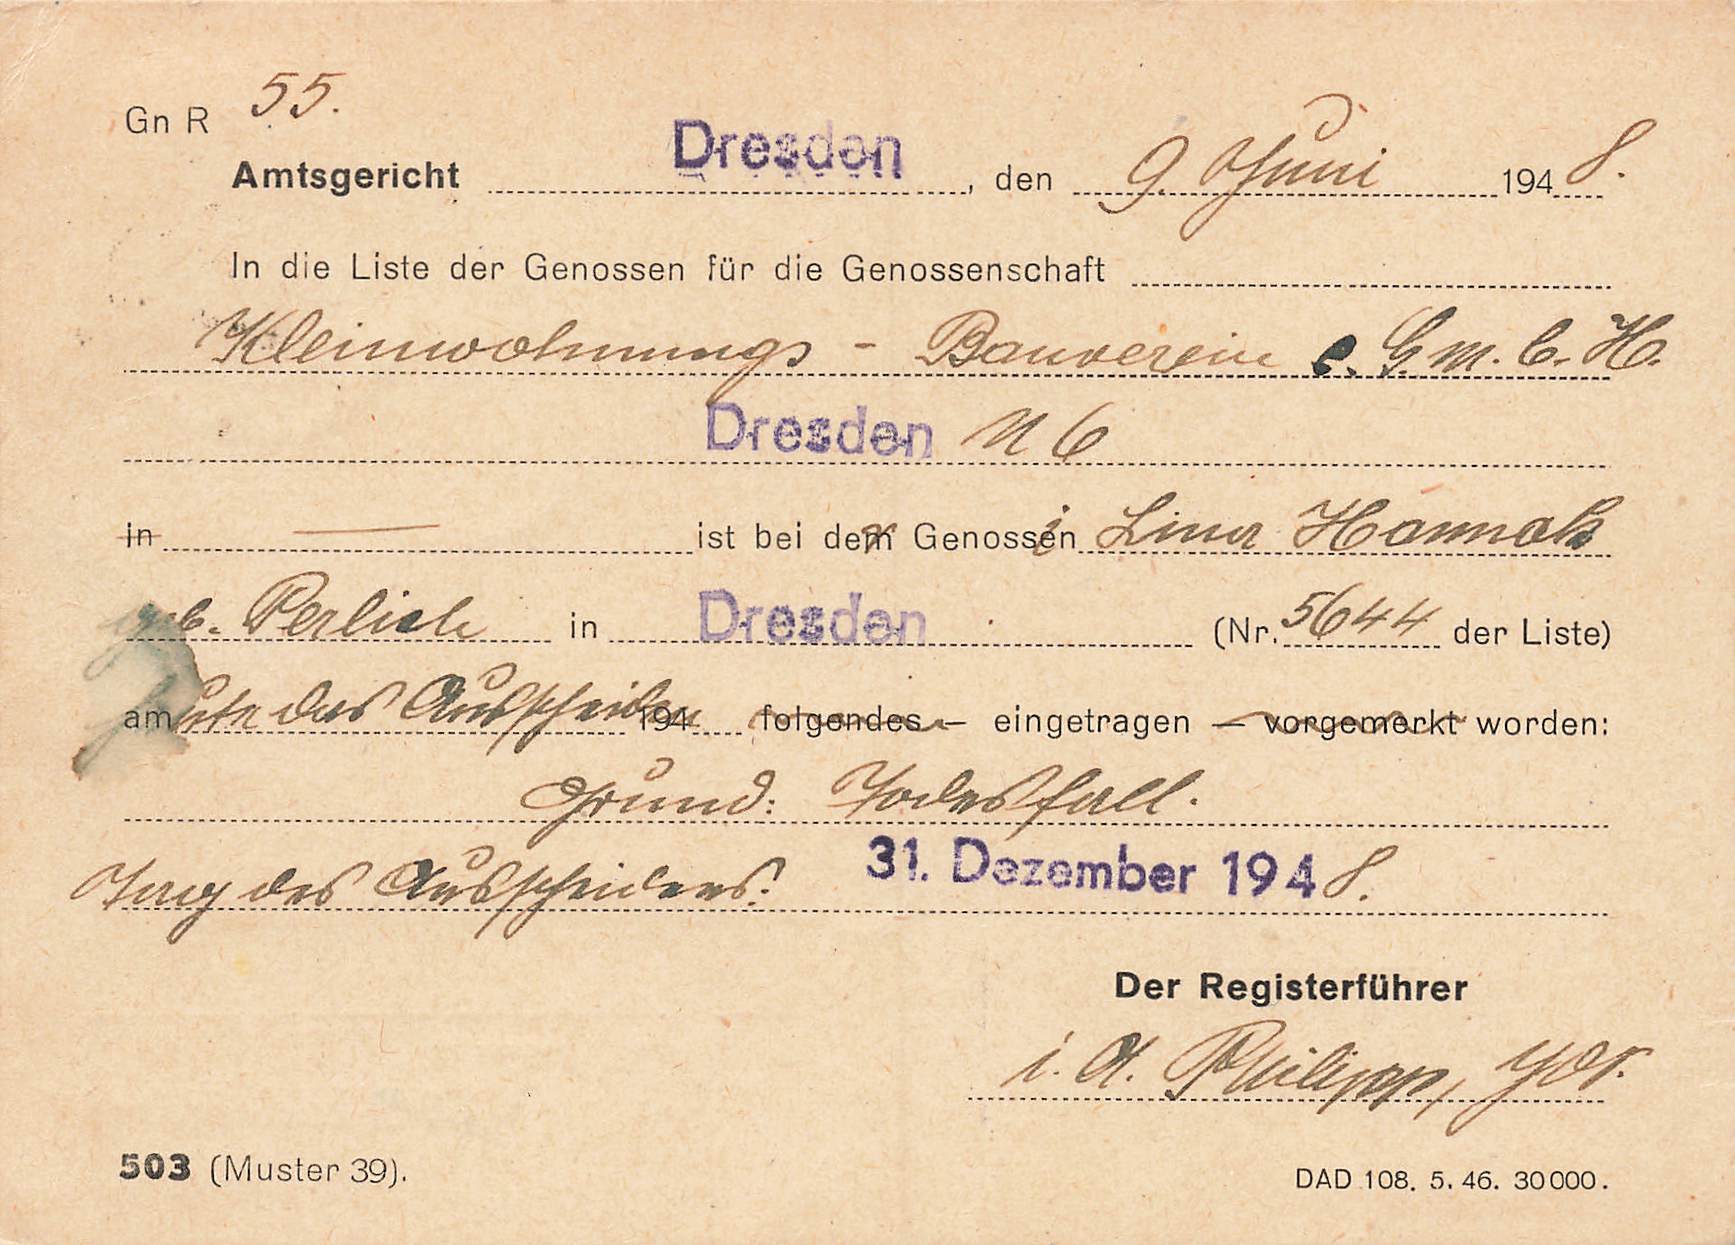 Gn R 55.
Amtsgericht Dresden, den 9. Juni 1948.
In die Liste der Genossen für die Genossenschaft
Kleinwohnungs - Bauverein e. G. m. b. H.
Dresden N 6
in — ist bei der Genossin Lina Hannak
geb. Perlich in Dresden (Nr. 5644 der Liste)
am heute das Ausscheiden 194 folgendes – eingetragen – vorgemerkt worden:
Grund: Todesfall.
Tag des Ausscheidens: 31. Dezember 1948.
Der Registerführer
i. A. Philipp,
503 (Muster 39).
DAD 108. 5. 46. 30000.